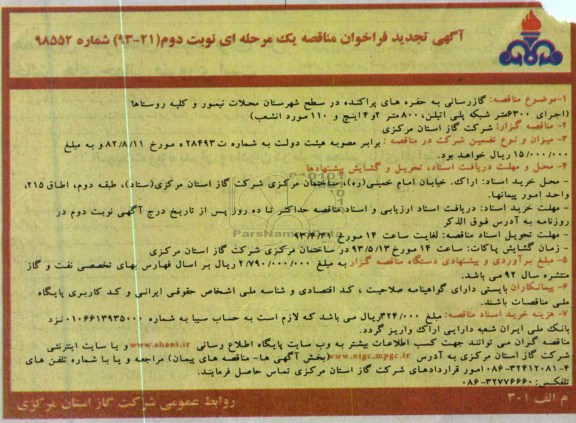 آگهی تجدید فراخوان مناقصه یک مرحله ای نوبت دوم(۲۱-۹۳) شماره ۹۸۵۵۲
۱-موضوع مناقصه: گازرسانی به حفره های پراکنده در سطح شهرستان محلات نیمور و کلیه روستاها
(اجرای ۶۳۰۰متر شبکه پلی اتیلن، ۸۰۰متر ۲و۴ اینچ و ۱۱۰مورد انشعب)
۲- مناقصه گزار: شرکت گاز استان مرکزی
۳- میزان و نوع تضمین شرکت در مناقصه : برابر مصوبه هیئت دولت به شماره ت۲۸۴۹۳ه مورخ ۸۲/۸/۱۱ و به مبلغ
۱۵/۰۰۰/۰۰۰ ریال خواهد بود.
۴- محل و مهلت دریافت اسناد، تحویل و گشایش پیشنهادها
- محل خرید اسناد: اراک، خیابان امام خمینی(ره)، ساختمان مرکزی شرکت گاز استان مرکزی(ستاد)، طبقه دوم، اطاق۲۱۵،
واحد امور پیمانها.
- مهلت خرید اسناد: دریافت اسناد ارزیابی و اسناد مناقصه حداکثر تا ده روز پس از تاریخ درج آگهی نوبت دوم در
روزنامه به آدرس فوق الذکر
- مهلت تحویل اسناد مناقصه: لغایت ساعت ۱۴ مورخ ۹۳/۴/۳۱
- زمان گشایش پاکات: ساعت ۱۴ مورخ ۹۳/۵/۱۳ در ساختمان مرکزی شرکت گاز استان مرکزی
۵- مبلغ برآوردی و پیشنهادی دستگاه مناقصه گزار به مبلغ ۲/۷۹۰/۰۰۰/۰۰۰ریال بر اسال فهارس بهای تخصصی نفت و گاز
منتشره سال ۹۲ می باشد.
۶- پیمانکاران بایستی دارای گواهینامه صلاحیت ، کد اقتصادی و شناسه ملی اشخاص حقوقی ایرانی و کد کاربری پایگاه
ملی مناقصات باشند.
۷- هزینه خرید اسناد مناقصه: مبلغ ۳۲۴/۰۰۰ریال می باشد که لازم است به حساب سیبا به شماره ۰۱۰۶۶۱۳۹۳۵۰۰۰ نزد
بانک ملی ایران شعبه دارایی اراک واریز گردد.
مناقصه گران می توانند جهت کسب اطلاعات بیشتر به وب سایت پایگاه اطلاع رسانی www.shani.ir و یا سایت اینترنتی
شرکت گاز استان مرکزی به آدرس www.nigc.mpgc.ir(بخش آگهی ها- مناقصه های پیمان) مراجعه و یا با شماره تلفن های
۰۸۶-۳۲۴۱۲۰۸۱-۴ امور قراردادهای شرکت گاز استان مرکزی تماس حاصل فرمایند.
تلفکس: ۰۸۶-۳۲۷۷۶۶۶۰
م الف ۳۰۱
روابط عمومی شرکت گاز استان مرکزی